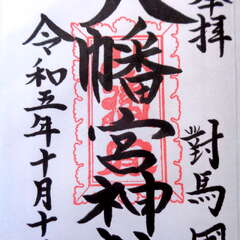 奉拝
對馬國
八幡宮神社
令和五年十月十